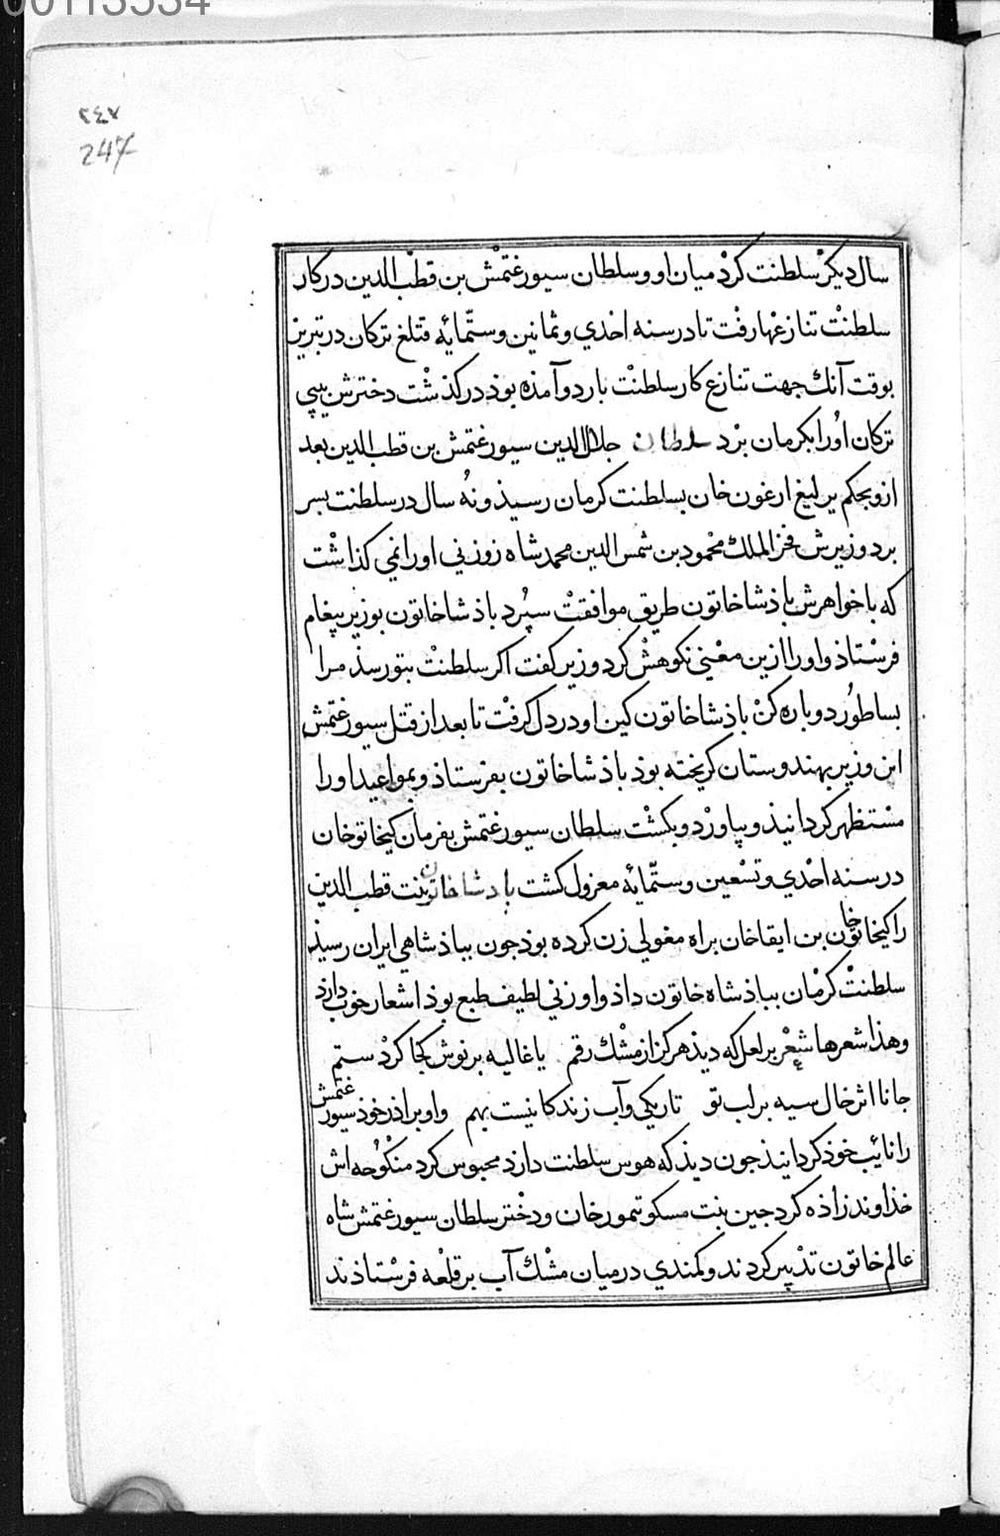 00113534
٢٤٧
247
سال دیکر سلطنت کرد میان او و سلطان سیورغتمش بن قطب الدین در کار
سلطنت تنازعها رفت تا در سنه احدی و ثمانین و ستّمائه قتلغ ترکان در تبریز
بوقت آنك جهت تنازع کار سلطنت باردو آمذه بوذ در کذشت دخترش بیبی
ترکان او را بکرمان برد سلطان جلال الدین سیورغتمش بن قطب الدین بعد
ازو بحکم یرلیغ ارغون خان بسلطنت کرمان رسیذ و نُه سال در سلطنت بسر
برد وزیرش فخر الملك محمود بن شمس الدین محمد شاه زوزنی او را نمی کذاشت
که با خواهرش باذشا خاتون طریق موافقت سپُرد باذشا خاتون بوزیر پیغام
فرستاذ و او را ازین معنی نکوهش کرد وزیر کفت اکر سلطنت بتو رسذ مرا
بساطور دو باره کن باذشا خاتون کین او در دل کرفت تا بعد از قتل سیورغتمش
این وزیر بهندوستان کریخته بوذ باذشا خاتون بفرستاذ و بمواعید او را
مستظهر کردانیذ و بیاورد و بکشت سلطان سیورغتمش بفرمان کیخاتو خان
در سنه احدی و تسعین و ستّمائه معزول کشت بادشا خاتون بنت قطب الدین
را کیخاتو خان بن ابقا خان براه مغولی زن کرده بوذ جون بباذشاهی ایران رسیذ
سلطنت کرمان بباذشاه خاتون داذ و او زنی لطیف طبع بوذ اشعار خوب دارذ
وهذا شعرها شعر بر لعل که دیذ هرکز از مشك رقم یا غالیه بر نوش کجا کرد ستم
جانا اثر خال سیه بر لب تو تاریکی و آب زندکانیست بهم و او براذر خوذ سیورغتمش
را نائب خوذ کردانیذ جون دیذ که هوس سلطنت دارذ محبوس کرد منکوحه اش
خذاوندزاذه کردجین بنت مسکو تیمور خان و دختر سلطان سیورغتمش شاه
عالم خاتون تدبیر کردند و کمندی در میان مشك آب بر قلعه فرستاذند